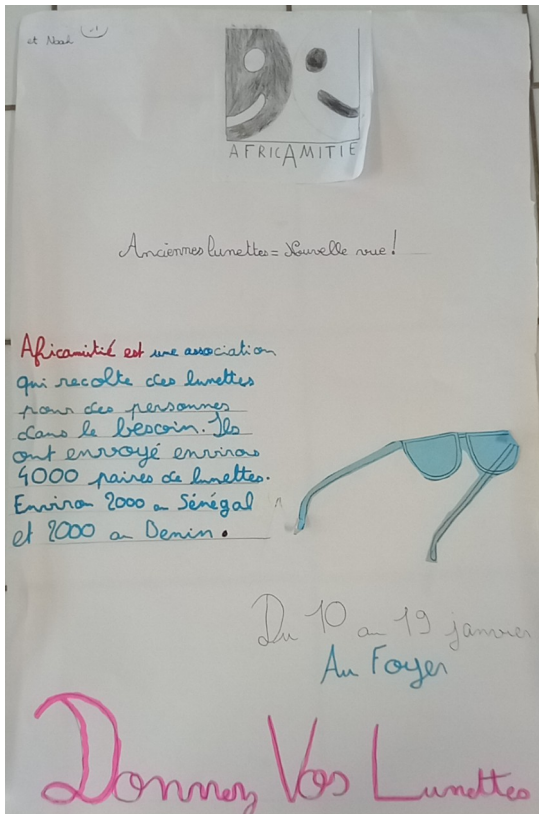 et Noah
AFRICAMITIE
Anciennes lunettes = Nouvelle vue !
Africamitié est une association
qui recolte des lunettes
pour des personnes
dans le besoin. Ils
ont envoyé environ
4000 paires de lunettes.
Environ 2000 au Sénégal
et 2000 au Benin.
Du 10 au 19 janvier
Au Foyer
Donnez Vos Lunettes